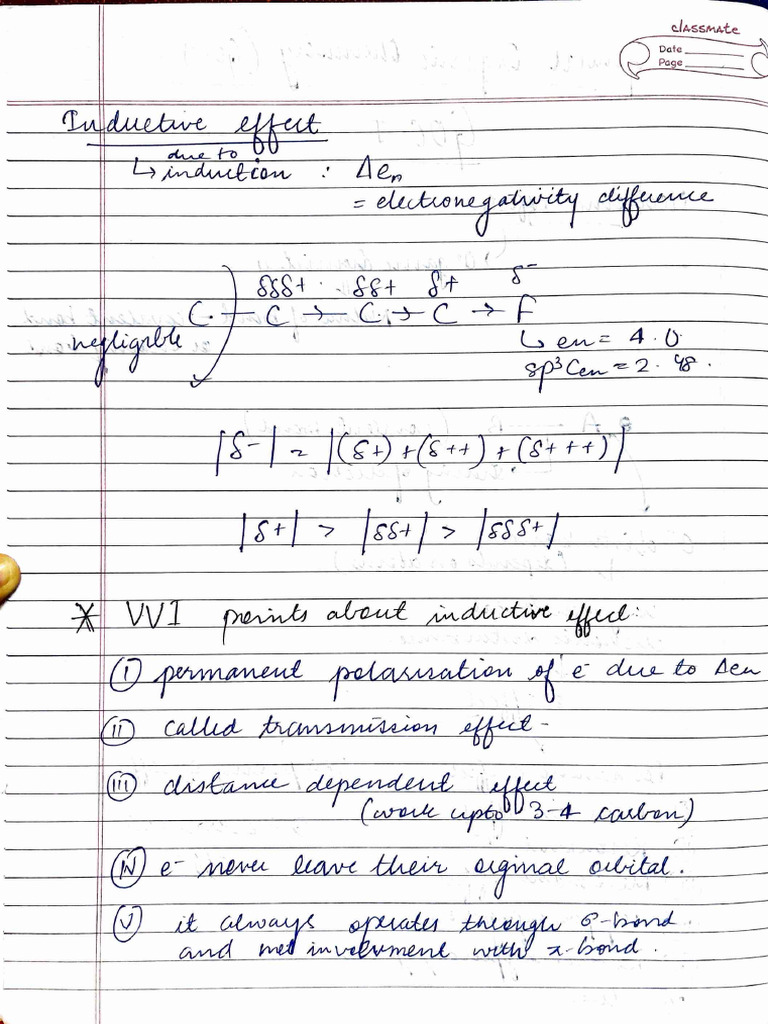 classmate
Date
Page
Inductive effect
due to
↳ induction : Δen
= electronegativity difference
δδδ+ δδ+ δ+ δ-
C - C → C → C → F
negligible
↳ en = 4.0
sp³ Cen = 2.48.
|δ-| = |(δ+) + (δ++) + (δ+++)|
|δ+| > |δδ+| > |δδδ+|
* VVI points about inductive effect:
(I) permanent polarisation of e⁻ due to Δen
(II) called transmission effect -
(III) distance dependent effect
(work upto 3-4 carbon)
(IV) e⁻ never leave their orginal orbital.
(V) it always operates through σ-bond
and involvment with π-bond.